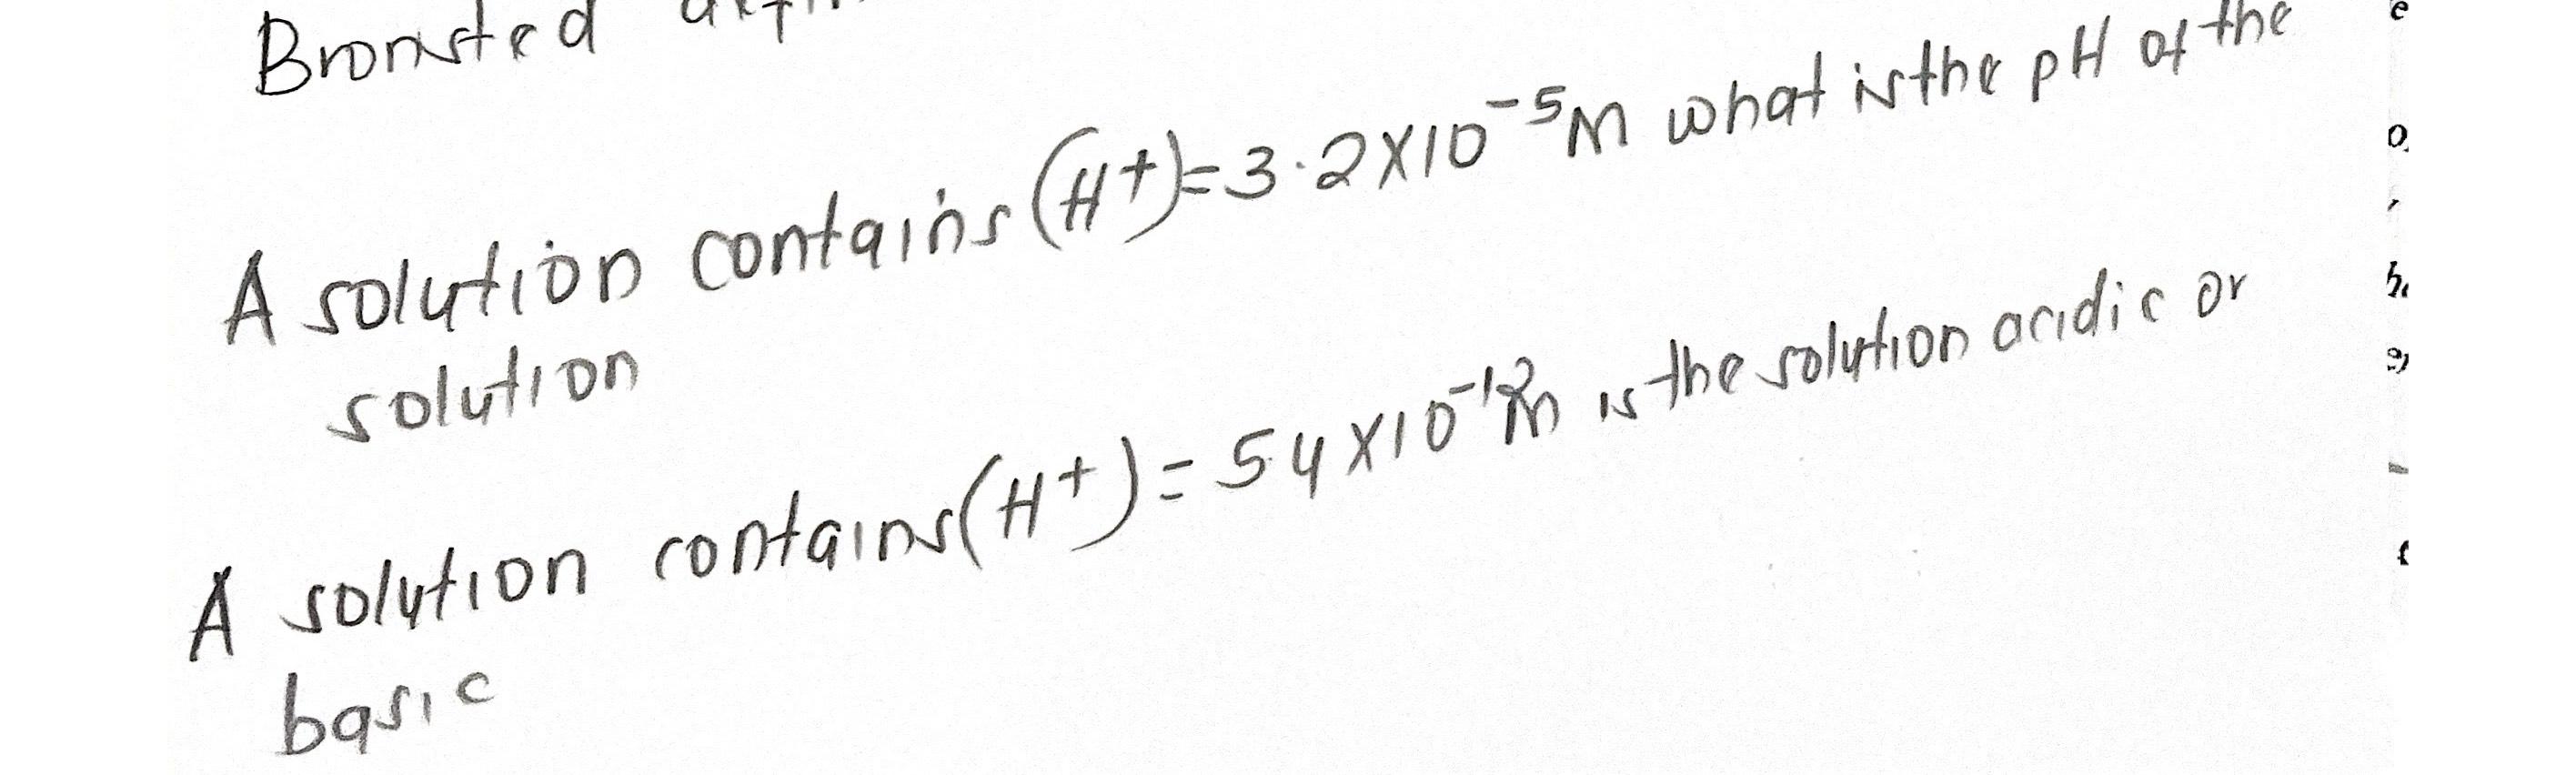 Bronsted
A solution contains (H+)=3.2X10-5M what is the pH of the
solution
A solution contains (H+) = 5.4X10-12m is the solution acidic or
basic